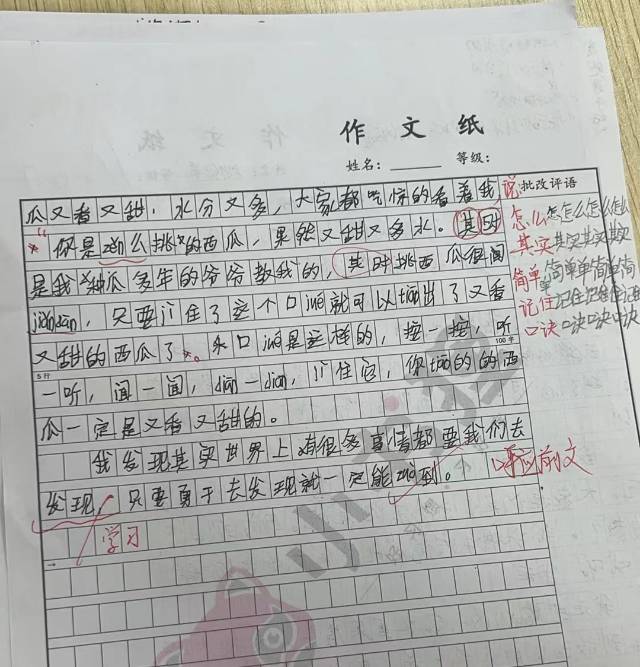 作 文 纸
姓名：
等级：
批改评语
瓜又香又甜，水分又多，大家都吃惊的看着我说
"你是zěn么挑的西瓜，果然又甜又多水。其时
是我种瓜多年的爷爷教我的，其时挑西瓜很
jiǎndān，只要记住了这个口jué就可以tiāo出了又香
又甜的西瓜了。口jué是这样的，按一按，听
一听，闻一闻，diān一diān，记住它，你tiāo的的西
瓜一定是又香又甜的。
我发现其实世界上有很多事情都要我们去
发现，只要勇于去发现就一定能zuò到。
学习
怎么怎么怎么怎么
其实其实其实其实
简单简单简单简
记住记住记住记住
口诀口诀口诀口诀
呼应前文
100字